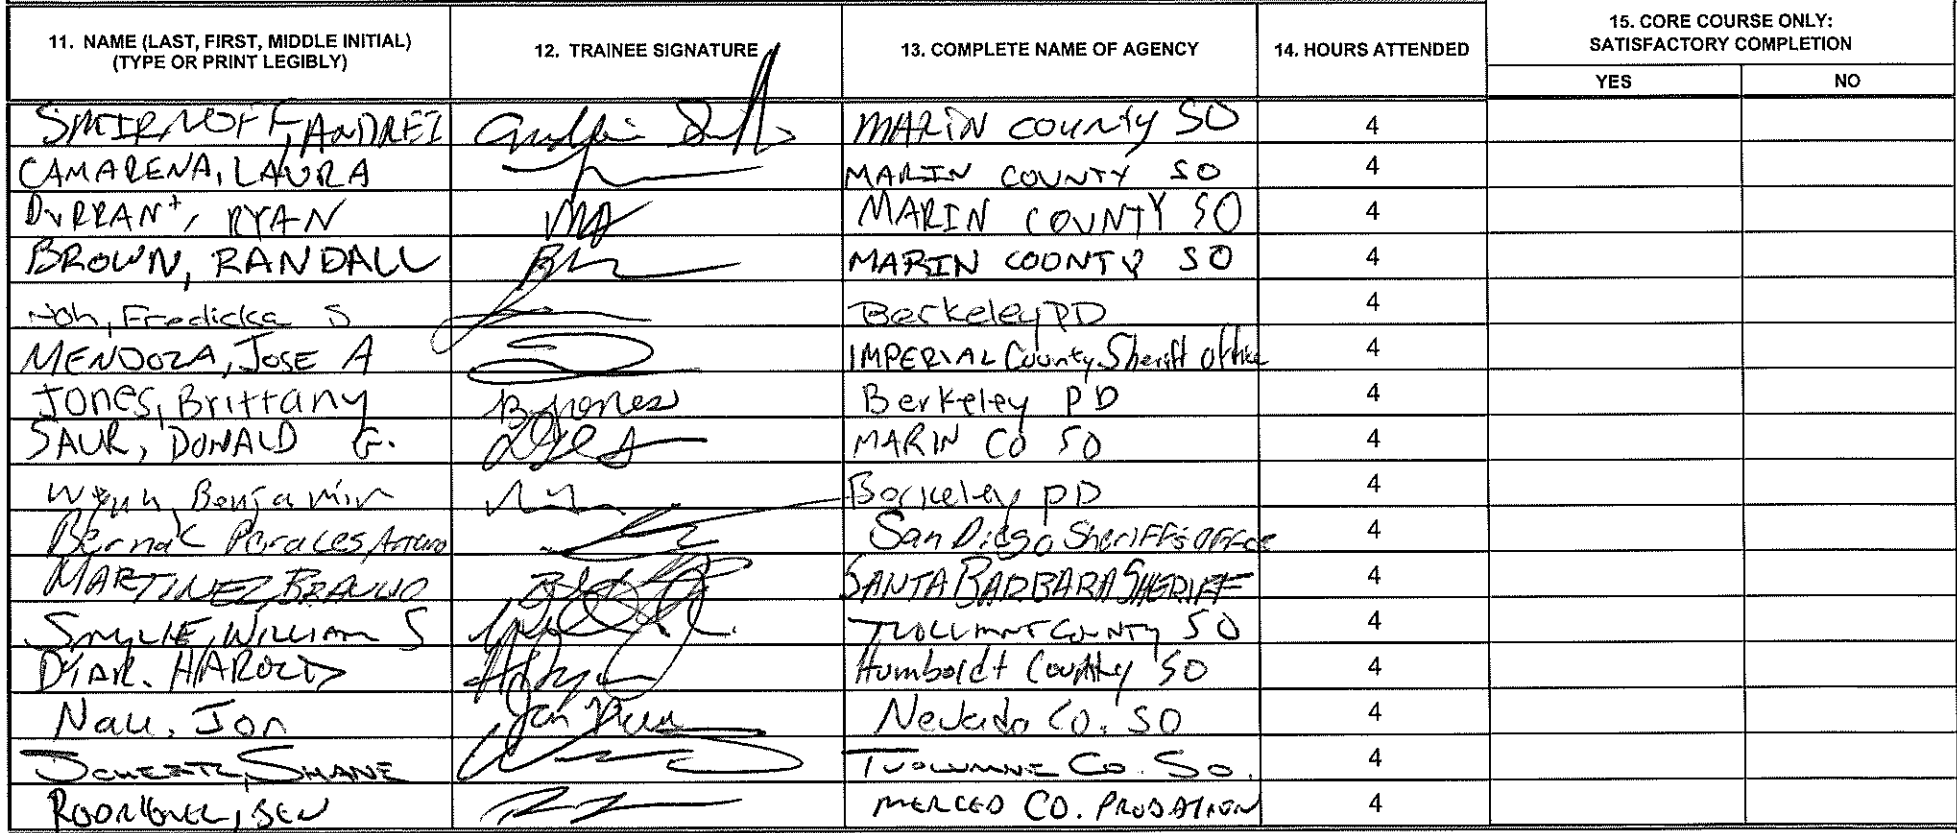 11. NAME (LAST, FIRST, MIDDLE INITIAL) (TYPE OR PRINT LEGIBLY) 12. TRAINEE SIGNATURE 13. COMPLETE NAME OF AGENCY 14. HOURS ATTENDED 15. CORE COURSE ONLY: SATISFACTORY COMPLETION
YES NO
SMIRNOFF, ANDREI MARIN COUNTY SO 4
CAMARENA, LAURA MARIN COUNTY SO 4
DURRANt, RYAN MARIN COUNTY SO 4
BROWN, RANDALL MARIN COUNTY SO 4
Noh, Fredicka S Berkeley PD 4
MENDOZA, JOSE A IMPERIAL County Sheriff Office 4
Jones, Brittany B Jones Berkeley PD 4
SAUR, DONALD G. MARIN CO SO 4
Wynn, Benjamin Berkeley PD 4
Bernal Perales, Arturo San Diego Sheriff's Office 4
MARTINEZ BRAULIO SANTA BARBARA SHERIFF 4
SMYLIE, WILLIAM S COUNTY SO 4
DIAR. HAROLD Humboldt County SO 4
Nau. Jon Nevada Co. SO 4
SHANE TUOLUMNE Co. So. 4
RODRIGUEZ, BEN MERCED CO. PROBATION 4